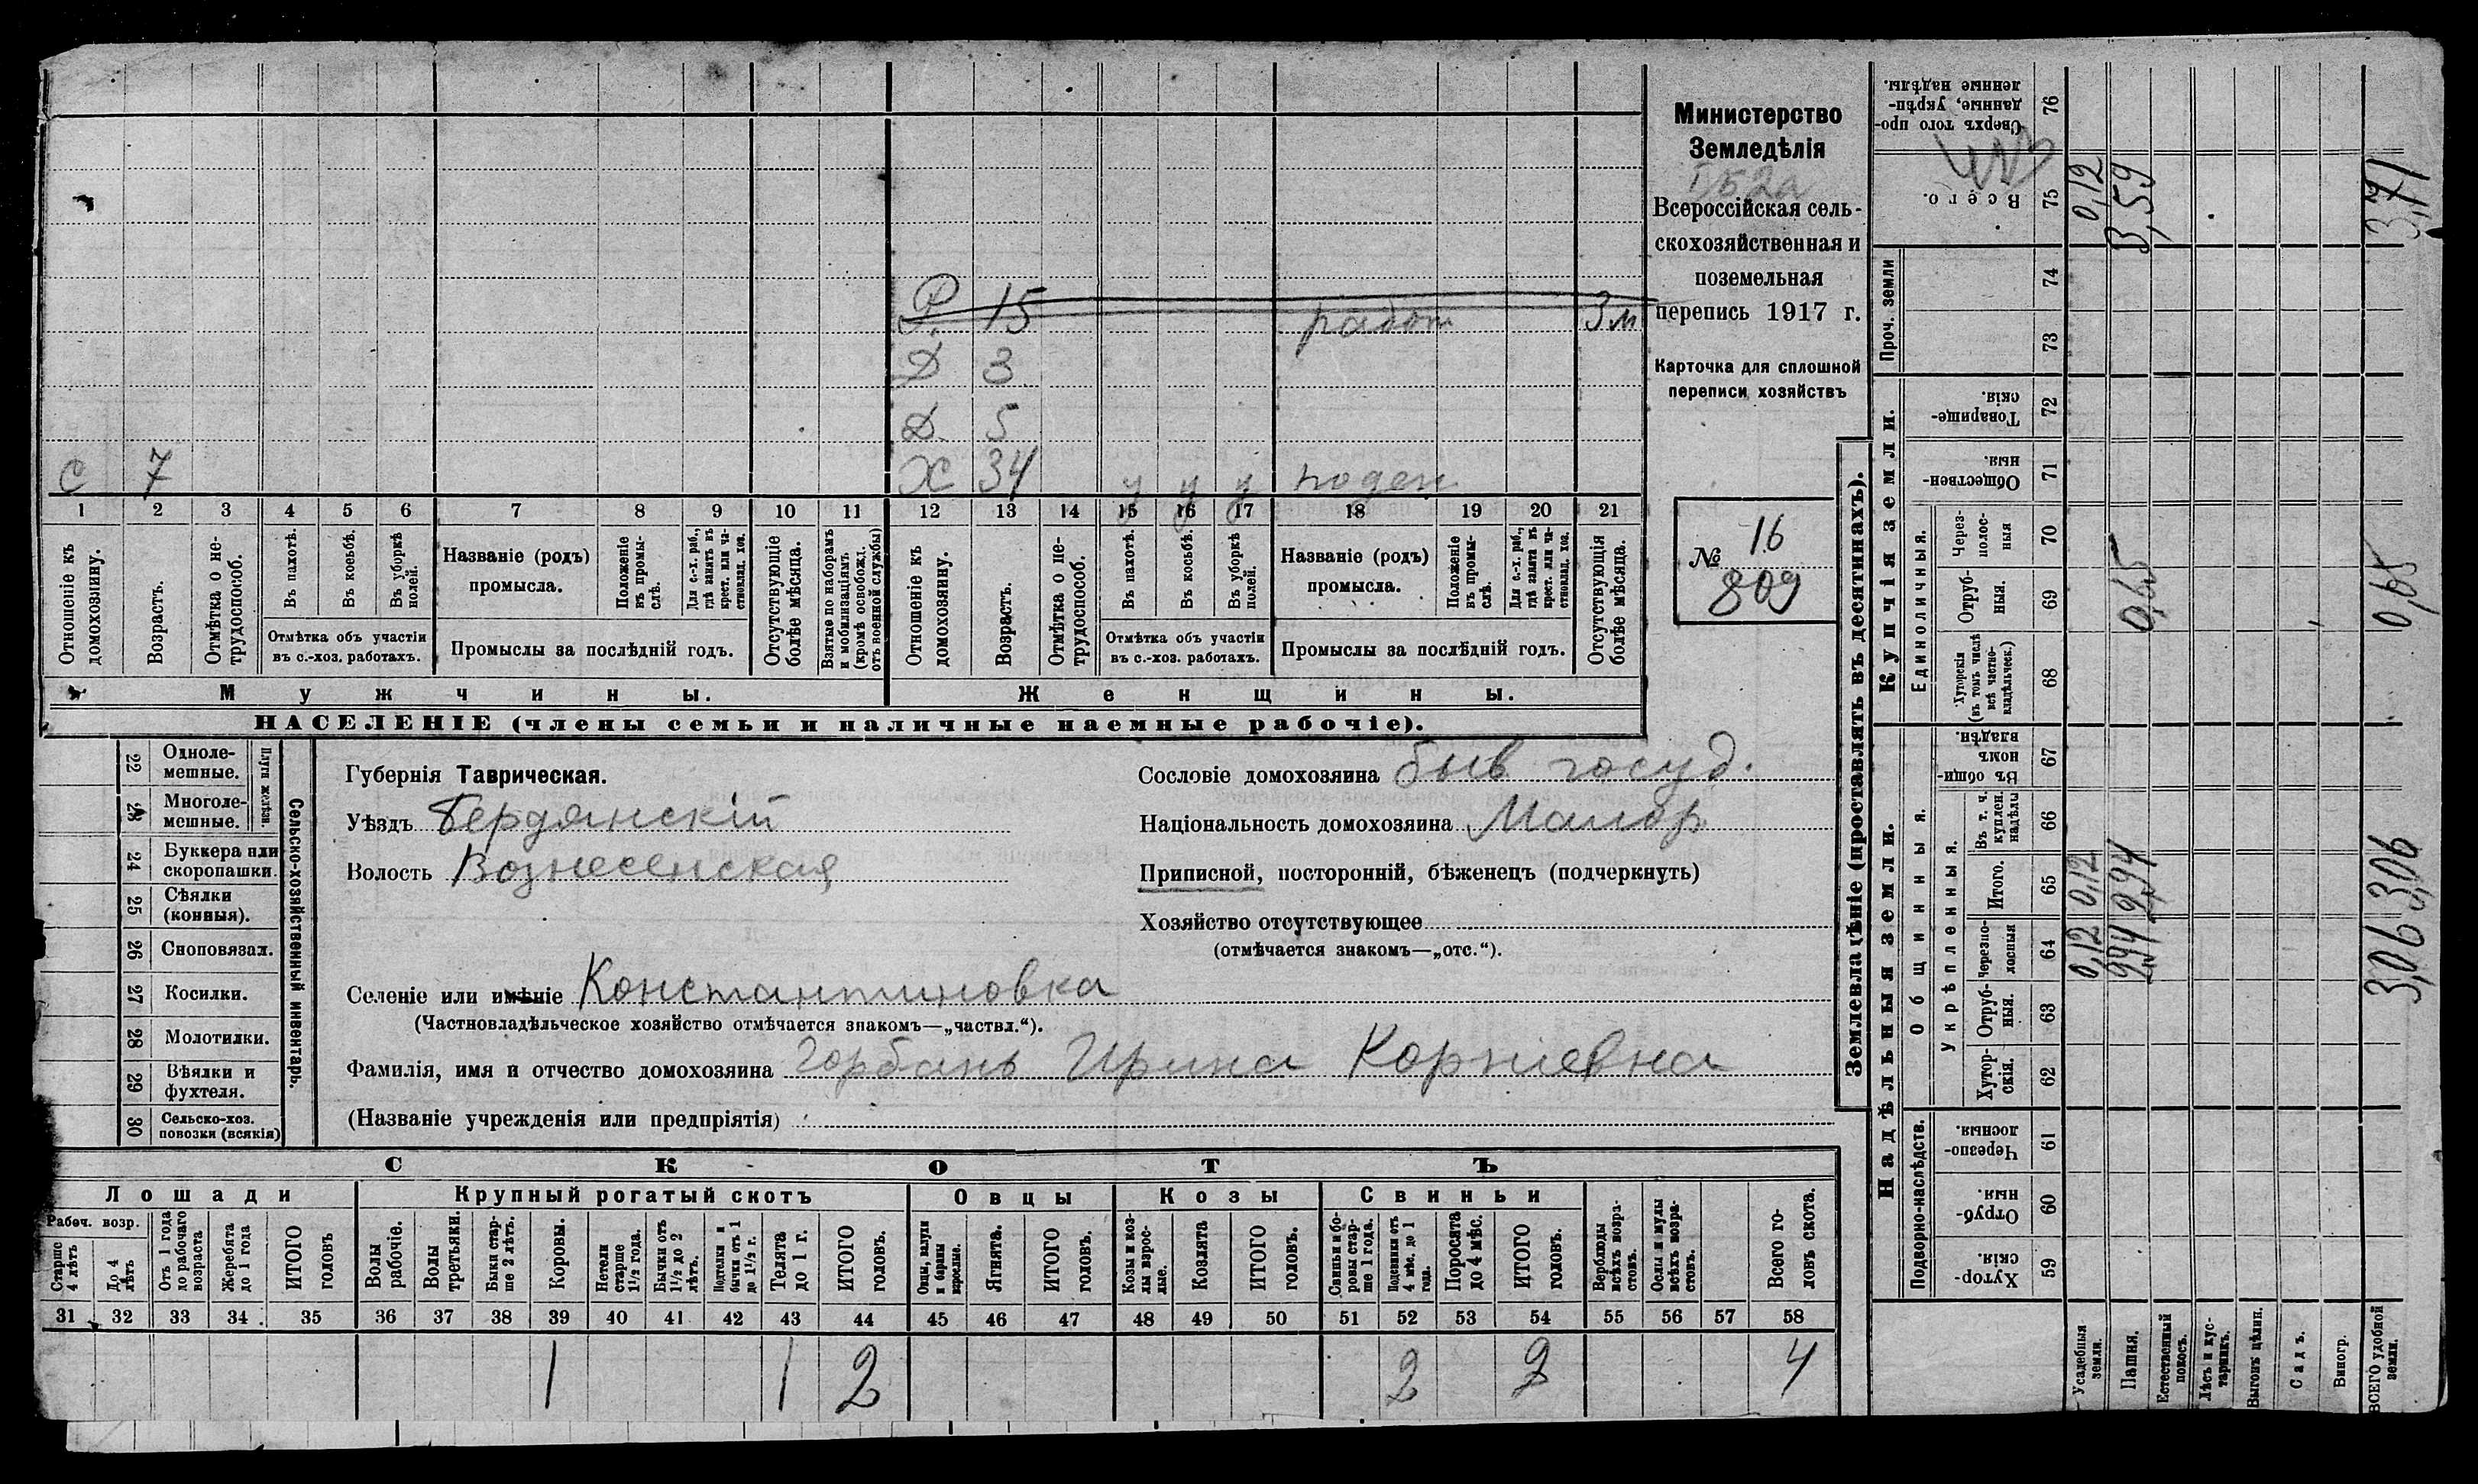 Министерство
Земледѣлія
Всероссійская сель-
скохозяйственная и
поземельная
перепись 1917 г.
Карточка для сплошной
переписи хозяйствъ
№ 16
809
Р. 15 работ 3 м
Д 3
Д 5
С 7 Х 34 у у у поден
1 2 3 4 5 6 7 8 9 10 11 12 13 14 15 16 17 18 19 20 21
Отношеніе къ домохозяину.
Возрастъ.
Отмѣтка о не-трудоспособ.
Въ пахотѣ.
Въ косьбѣ.
Въ уборкѣ полей.
Отмѣтка объ участіи
въ с.-хоз. работахъ.
Названіе (родъ)
промысла.
Положеніе въ промы-слѣ.
Для с.-х. раб., гдѣ занятъ въ крест. или ча-стновлад. хоз.
Промыслы за послѣдній годъ.
Отсутствующіе болѣе мѣсяца.
Взятые по наборамъ и мобилизаціямъ (кромѣ освобожд. отъ военной службы)
Отношеніе къ домохозяину.
Возрастъ.
Отмѣтка о не-трудоспособ.
Въ пахотѣ.
Въ косьбѣ.
Въ уборкѣ полей.
Отмѣтка объ участіи
въ с.-хоз. работахъ.
Названіе (родъ)
промысла.
Положеніе въ промы-слѣ.
Для с.-х. раб., гдѣ занята въ крест. или ча-стновлад. хоз.
Промыслы за послѣдній годъ.
Отсутствующія болѣе мѣсяца.
Мужчины. Женщины.
НАСЕЛЕНІЕ (члены семьи и наличные наемные рабочіе).
Сельско-хозяйственный инвентарь.
Плуги желѣзн.
22 Одноле-мешные.
23 Многоле-мешные.
24 Буккера или скоропашки.
25 Сѣялки (конныя).
26 Сноповязал.
27 Косилки.
28 Молотилки.
29 Вѣялки и фухтеля.
30 Сельско-хоз. повозки (всякія)
Губернія Таврическая.
Уѣздъ Бердянскій
Волость Вознесенская
Селеніе или имѣніе Константиновка
(Частновладѣльческое хозяйство отмѣчается знакомъ—„частвл.“).
Фамилія, имя и отчество домохозяина Горбань Ирина Корніевна
(Названіе учрежденія или предпріятія)
Сословіе домохозяина быв госуд.
Національность домохозяина Малор
Приписной, посторонній, бѣженецъ (подчеркнуть)
Хозяйство отсутствующее
(отмѣчается знакомъ—„отс.“).
СКОТЪ
Лошади Крупный рогатый скотъ Овцы Козы Свиньи
Рабоч. возр.
Старше 4 лѣтъ
До 4 лѣтъ
Отъ 1 года до рабочаго возраста
Жеребята до 1 года
ИТОГО головъ
Волы рабочіе.
Волы третьяки.
Быки стар-ше 2 лѣтъ.
Коровы.
Нетели старше 1½ года.
Бычки отъ 1½ до 2 лѣтъ.
Подтелки и бычки отъ 1 до 1½ г.
Телята до 1 г.
ИТОГО головъ.
Овцы, валухи и бараны взрослые.
Ягнята.
ИТОГО головъ.
Козы и коз-лы взрос-лые.
Козлята
ИТОГО головъ.
Свиньи и бо-ровы стар-ше 1 года.
Подсвинки отъ 4 мѣс. до 1 года.
Поросята до 4 мѣс.
ИТОГО головъ.
Верблюды всѣхъ возра-стовъ.
Ослы и мулы всѣхъ возра-стовъ.
Всего го-ловъ скота.
31 32 33 34 35 36 37 38 39 40 41 42 43 44 45 46 47 48 49 50 51 52 53 54 55 56 57 58
1 1 2 2 2 4
Землевладѣніе (проставлять въ десятинахъ).
Надѣльныя земли. Купчія земли. Проч. земли
Подворно-наслѣдств. Общинныя. Единоличныя.
Укрѣпленныя.
59 Хутор-скія.
60 Отруб-ныя.
61 Черезпо-лосныя.
62 Хутор-скія.
63 Отруб-ныя.
64 Черезпо-лосныя
65 Итого.
66 Въ т. ч. куплен. надѣлы
67 Въ общи-номъ владѣн.
68 Хуторскія (въ томъ числѣ всѣ частно-владѣльческ.)
69 Отруб-ныя.
70 Через-полос-ныя
71 Обществен-ныя.
72 Товарище-скія.
73
74
75 Всего.
76 Сверхъ того про-данные, укрѣп-ленные надѣлы.
Усадебныя земли. 0,12 0,12 0,12
Пашня. 2,94 2,94 0,65 3,59
Естественный покосъ.
Лѣсъ и кус-тарникъ.
Выгонъ цѣлин.
Садъ.
Виногр.
ВСЕГО удобной земли. 3,06 3,06 0,65 3,71